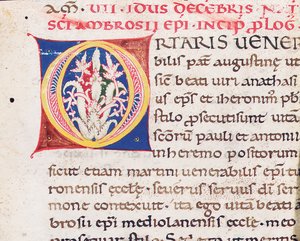 VII. IDUS DECEBRIS. N. I
SCI AMBROSII EPI. INCIP. PLOG
ORTARIS VENER
bilis pań augustine ut
sic beati uiri anathasi
us ep̄s et iheronim̄ pb
stilo psecuti sunt uita
scōrum pauli et antoni
inheremo positorum
ficut etiam martini uenerabilis ep̄i tu
ronensis eccl̄e. seuerus seruus dei serm
mone contexuit. ita ego uitā beati am
brosii ep̄i mediolanensis eccl̄e. meo